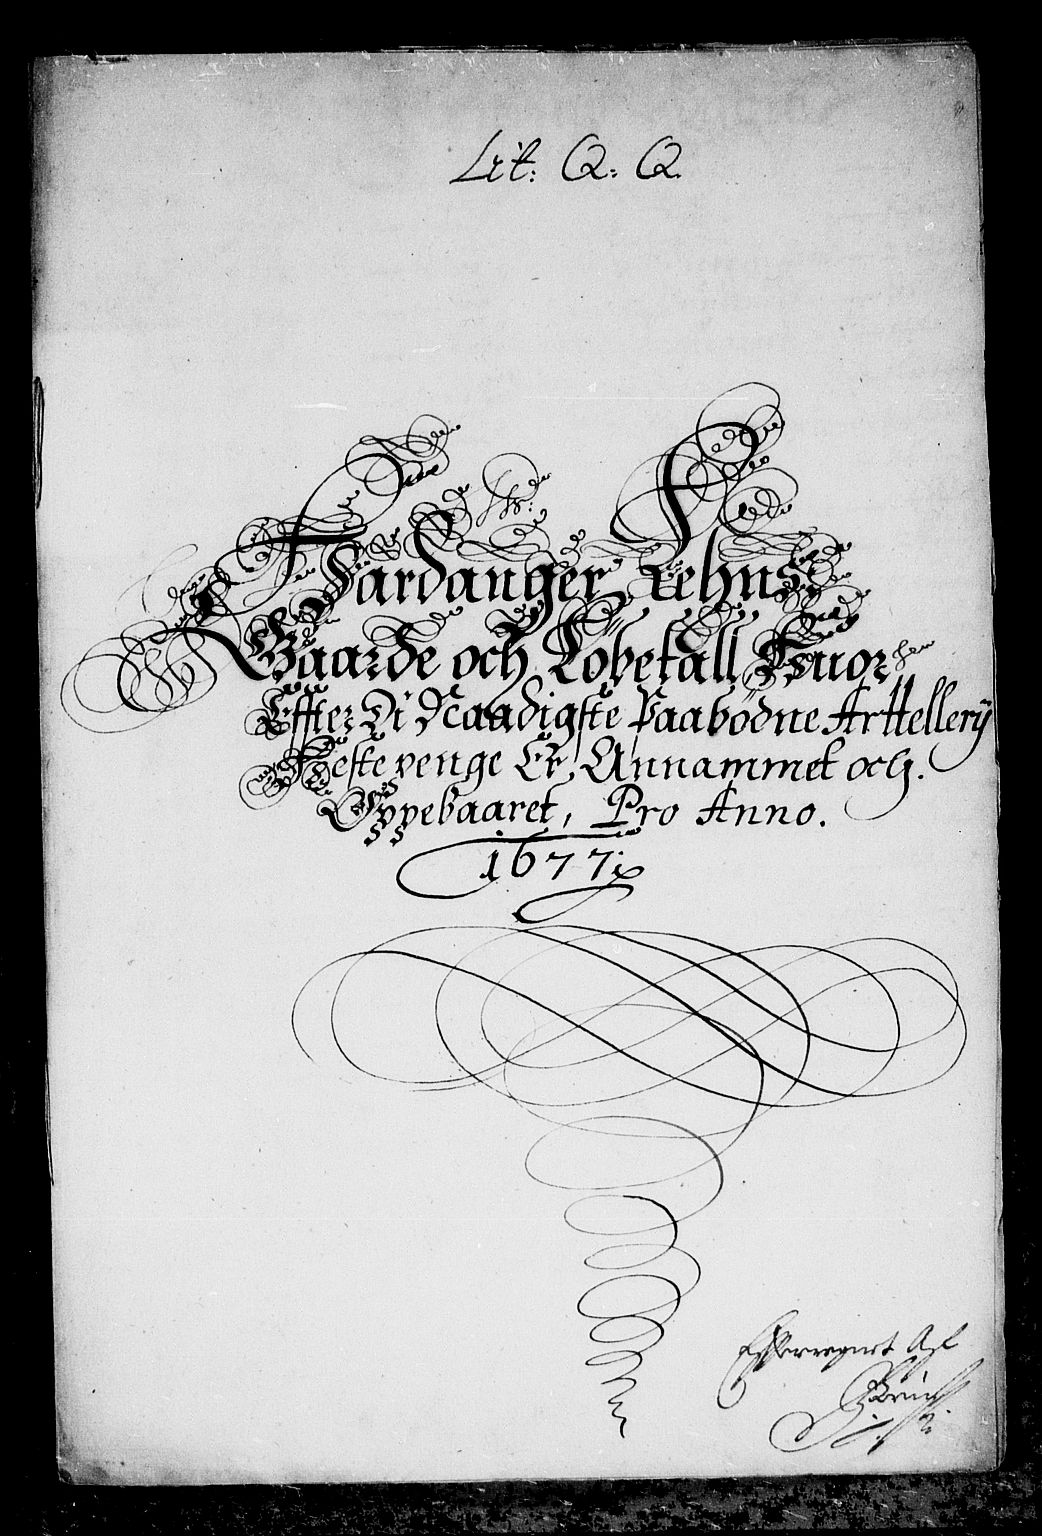 Lit: Q: Q.
Hardanger Lehns
Gaarde och Lobefall Huor
Effter Di Naadigste Paabødne Arttellerÿ
Heste penge Er, Annammet och.
Oppebaaret, Pro Anno.
1677:
Effterregnet Af